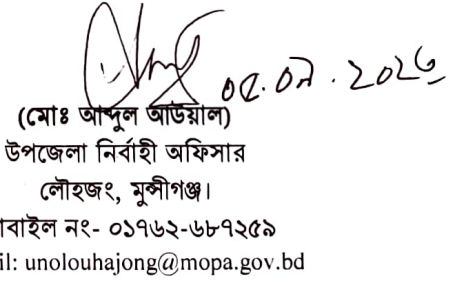 ০৫.০৯.২০২৩
(মোঃ আব্দুল আউয়াল)
উপজেলা নির্বাহী অফিসার
লৌহজং, মুন্সীগঞ্জ।
বাইল নং- ০১৭৬২-৬৮৭২৫৯
il: unolouhajong@mopa.gov.bd